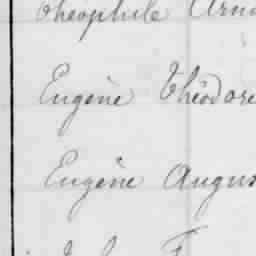 Théophile Arn
Eugène Théodore
Eugène Augus